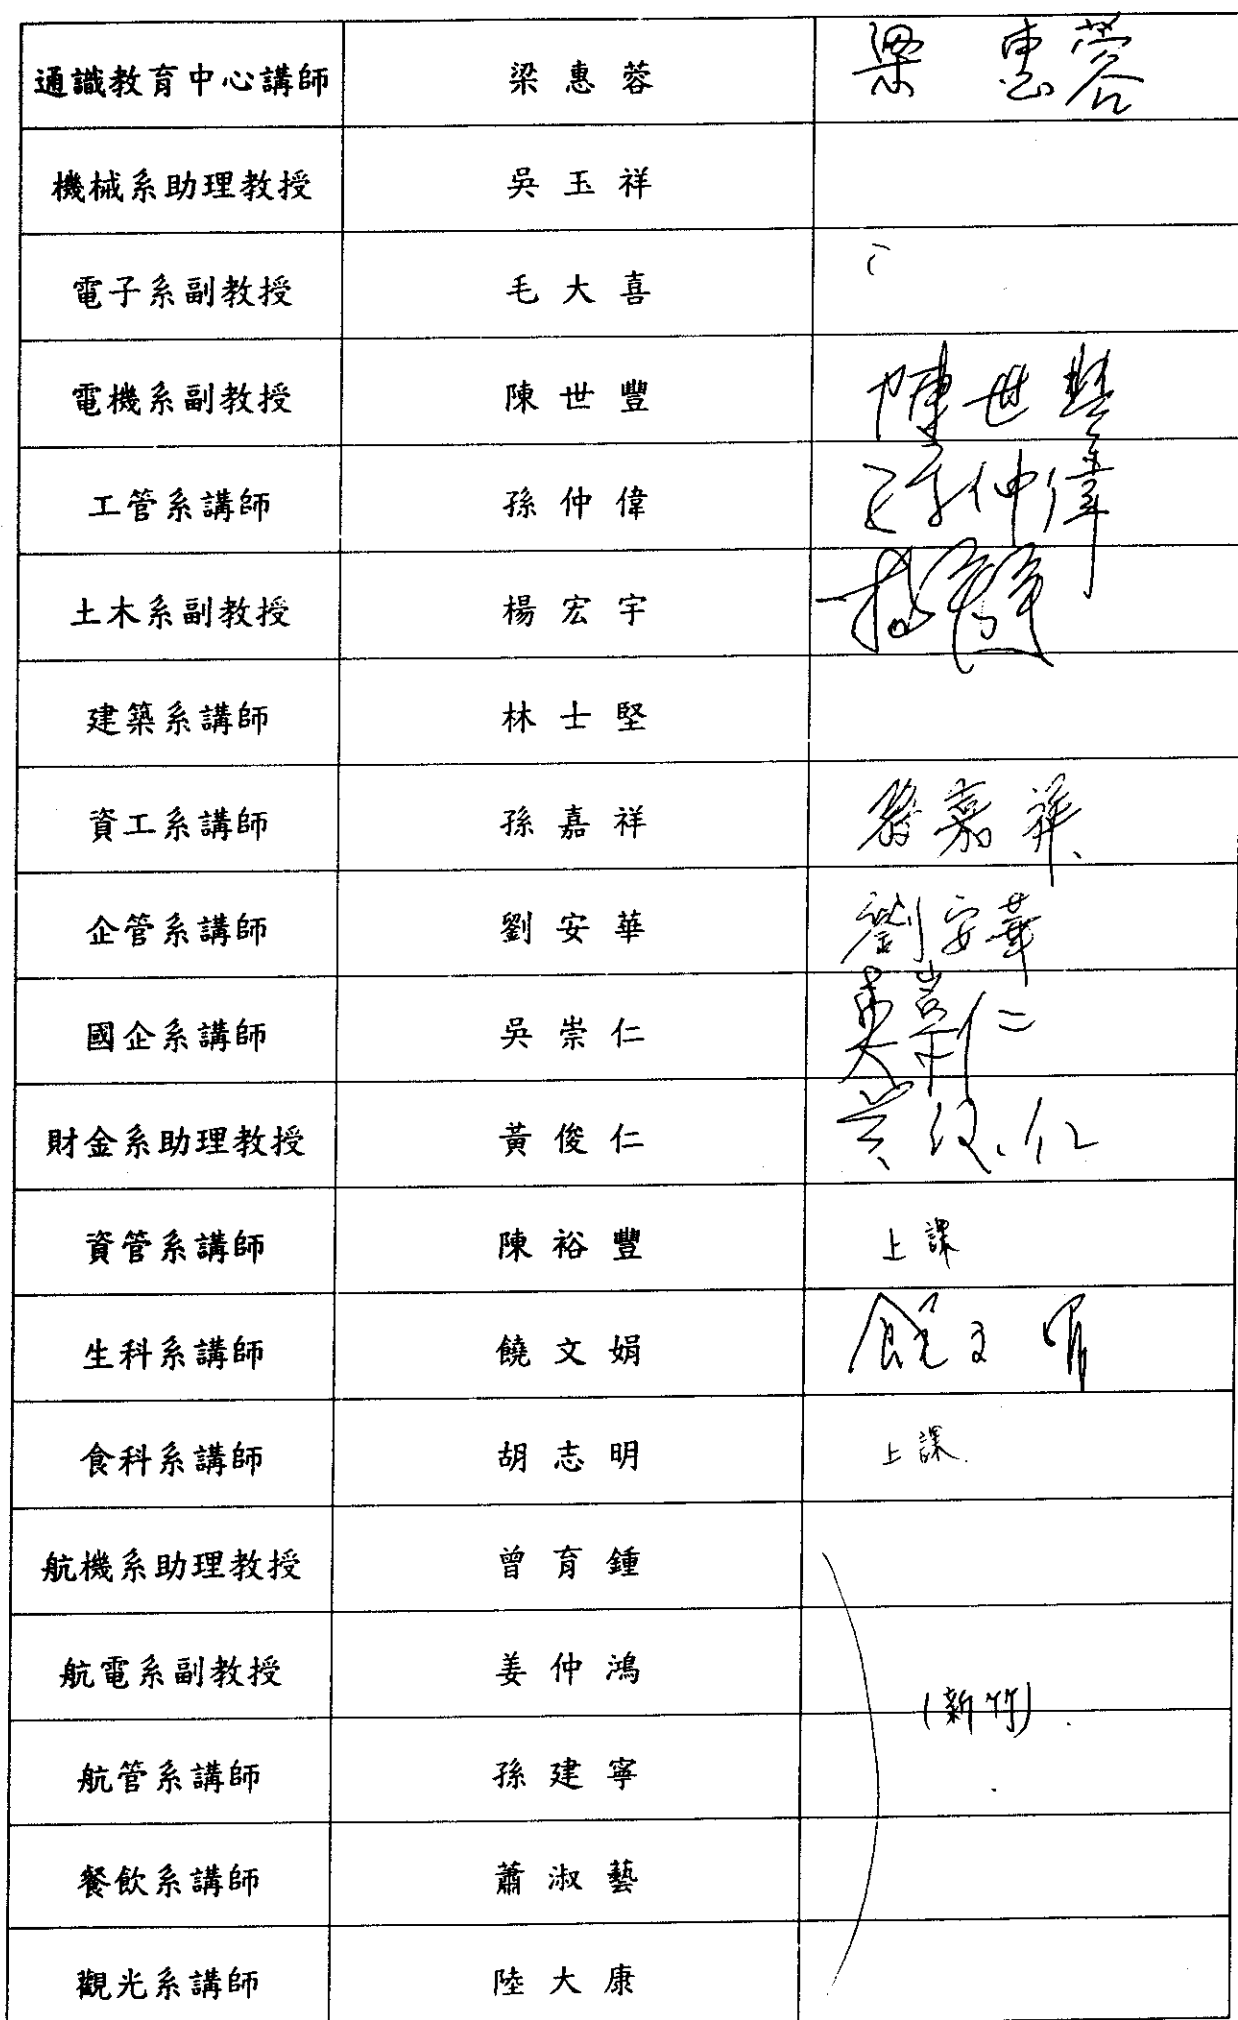 通識教育中心講師 梁惠蓉 梁惠蓉
機械系助理教授 吳玉祥
電子系副教授 毛大喜
電機系副教授 陳世豐 陳世豐
工管系講師 孫仲偉 孫仲偉
土木系副教授 楊宏宇
建築系講師 林士堅
資工系講師 孫嘉祥 孫嘉祥
企管系講師 劉安華 劉安華
國企系講師 吳崇仁 吳崇仁
財金系助理教授 黃俊仁 黃俊仁
資管系講師 陳裕豐 上課
生科系講師 饒文娟 饒文娟
食科系講師 胡志明 上課
航機系助理教授 曾育鍾
航電系副教授 姜仲鴻
(新竹)
航管系講師 孫建寧
餐飲系講師 蕭淑藝
觀光系講師 陸大康